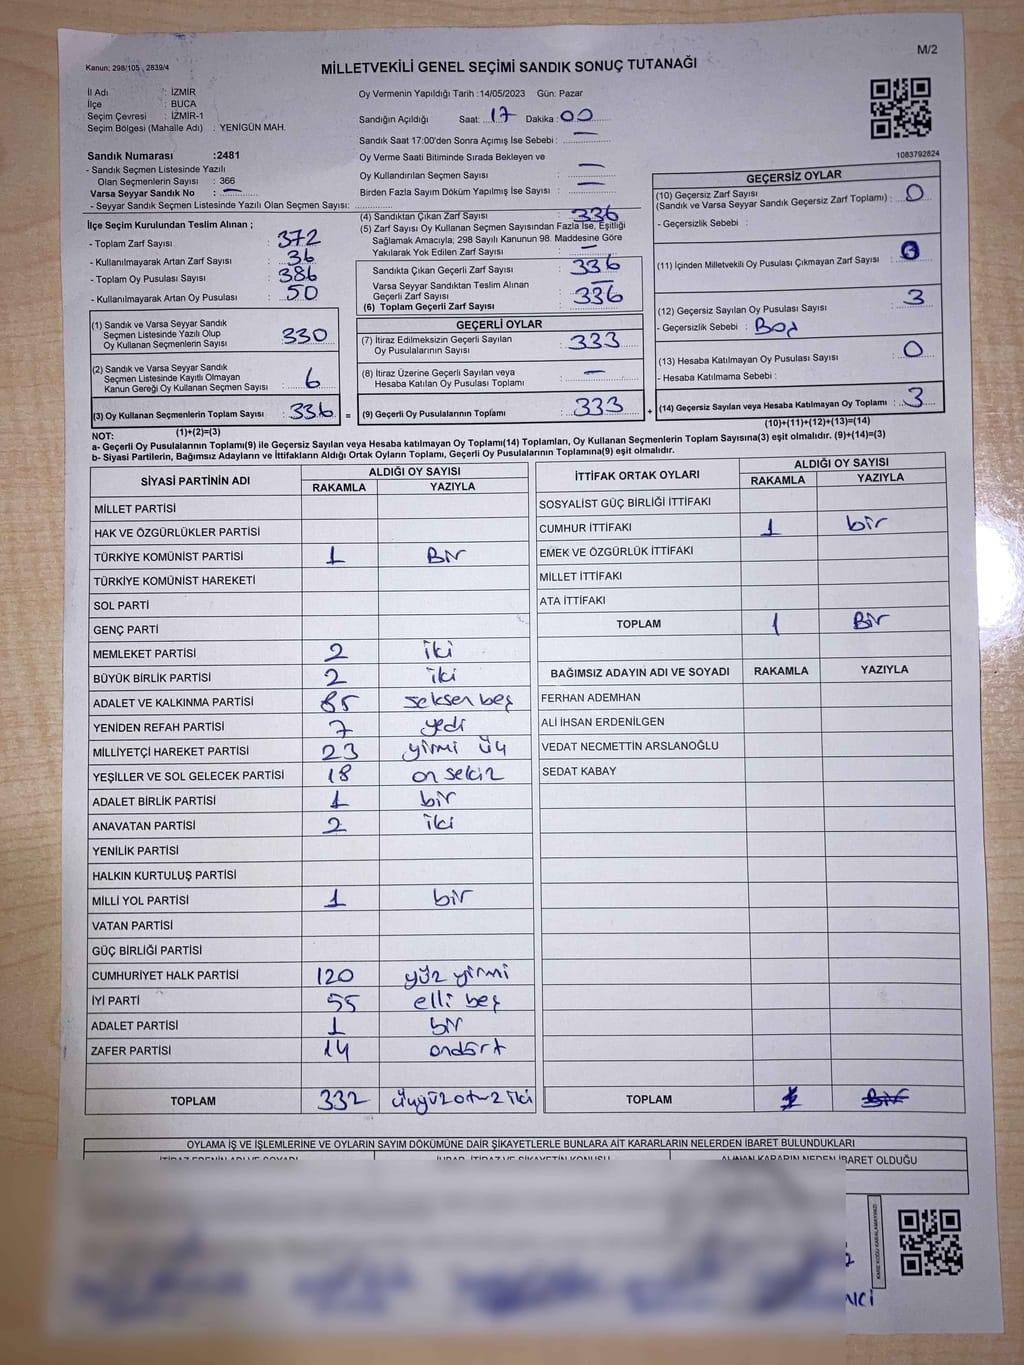 M/2
Kanun: 298/105 , 2839/4
MİLLETVEKİLİ GENEL SEÇİMİ SANDIK SONUÇ TUTANAĞI
İl Adı : İZMİR
İlçe : BUCA
Seçim Çevresi : İZMİR-1
Seçim Bölgesi (Mahalle Adı) : YENİGÜN MAH.
Sandık Numarası :2481
- Sandık Seçmen Listesinde Yazılı
Olan Seçmenlerin Sayısı : 366
Varsa Seyyar Sandık No : —
- Seyyar Sandık Seçmen Listesinde Yazılı Olan Seçmen Sayısı:
Oy Vermenin Yapıldığı Tarih :14/05/2023 Gün: Pazar
Sandığın Açıldığı Saat: 17 Dakika : 00
Sandık Saat 17:00'den Sonra Açımış İse Sebebi : —
Oy Verme Saati Bitiminde Sırada Bekleyen ve
Oy Kullandırılan Seçmen Sayısı : —
Birden Fazla Sayım Döküm Yapılmış İse Sayısı : —
1083792824
İlçe Seçim Kurulundan Teslim Alınan ;
- Toplam Zarf Sayısı : 372
- Kullanılmayarak Artan Zarf Sayısı : 36
- Toplam Oy Pusulası Sayısı : 386
- Kullanılmayarak Artan Oy Pusulası : 50
(1) Sandık ve Varsa Seyyar Sandık
Seçmen Listesinde Yazılı Olup
Oy Kullanan Seçmenlerin Sayısı : 330
(2) Sandık ve Varsa Seyyar Sandık
Seçmen Listesinde Kayıtlı Olmayan
Kanun Gereği Oy Kullanan Seçmen Sayısı : 6
(3) Oy Kullanan Seçmenlerin Toplam Sayısı : 336 =
(1)+(2)=(3)
(4) Sandıktan Çıkan Zarf Sayısı : 336
(5) Zarf Sayısı Oy Kullanan Seçmen Sayısından Fazla İse, Eşitliği
Sağlamak Amacıyla; 298 Sayılı Kanunun 98. Maddesine Göre
Yakılarak Yok Edilen Zarf Sayısı : —
Sandıkta Çıkan Geçerli Zarf Sayısı : 336
Varsa Seyyar Sandıktan Teslim Alınan
Geçerli Zarf Sayısı : —
(6) Toplam Geçerli Zarf Sayısı : 336
GEÇERLİ OYLAR
(7) İtiraz Edilmeksizin Geçerli Sayılan
Oy Pusulalarının Sayısı : 333
(8) İtiraz Üzerine Geçerli Sayılan veya
Hesaba Katılan Oy Pusulası Toplamı : —
(9) Geçerli Oy Pusulalarının Toplamı : 333 +
GEÇERSİZ OYLAR
(10) Geçersiz Zarf Sayısı
(Sandık ve Varsa Seyyar Sandık Geçersiz Zarf Toplamı) : 0
- Geçersizlik Sebebi :
(11) İçinden Milletvekili Oy Pusulası Çıkmayan Zarf Sayısı : 0
(12) Geçersiz Sayılan Oy Pusulası Sayısı : 3
- Geçersizlik Sebebi : Boş
(13) Hesaba Katılmayan Oy Pusulası Sayısı : 0
- Hesaba Katılmama Sebebi :
(14) Geçersiz Sayılan veya Hesaba Katılmayan Oy Toplamı : 3
(10)+(11)+(12)+(13)=(14)
NOT:
a- Geçerli Oy Pusulalarının Toplamı(9) ile Geçersiz Sayılan veya Hesaba katılmayan Oy Toplamı(14) Toplamları, Oy Kullanan Seçmenlerin Toplam Sayısına(3) eşit olmalıdır. (9)+(14)=(3)
b- Siyasi Partilerin, Bağımsız Adayların ve İttifakların Aldığı Ortak Oyların Toplamı, Geçerli Oy Pusulalarının Toplamına(9) eşit olmalıdır.
SİYASİ PARTİNİN ADI ALDIĞI OY SAYISI
RAKAMLA YAZIYLA
MİLLET PARTİSİ
HAK VE ÖZGÜRLÜKLER PARTİSİ
TÜRKİYE KOMÜNİST PARTİSİ 1 Bir
TÜRKİYE KOMÜNİST HAREKETİ
SOL PARTİ
GENÇ PARTİ
MEMLEKET PARTİSİ 2 iki
BÜYÜK BİRLİK PARTİSİ 2 iki
ADALET VE KALKINMA PARTİSİ 85 seksen beş
YENİDEN REFAH PARTİSİ 7 yedi
MİLLİYETÇİ HAREKET PARTİSİ 23 yirmi üç
YEŞİLLER VE SOL GELECEK PARTİSİ 18 on sekiz
ADALET BİRLİK PARTİSİ 1 bir
ANAVATAN PARTİSİ 2 iki
YENİLİK PARTİSİ
HALKIN KURTULUŞ PARTİSİ
MİLLİ YOL PARTİSİ 1 bir
VATAN PARTİSİ
GÜÇ BİRLİĞİ PARTİSİ
CUMHURİYET HALK PARTİSİ 120 yüz yirmi
İYİ PARTİ 55 elli beş
ADALET PARTİSİ 1 bir
ZAFER PARTİSİ 14 ondört
TOPLAM 332 üçyüzotuziki
İTTİFAK ORTAK OYLARI ALDIĞI OY SAYISI
RAKAMLA YAZIYLA
SOSYALİST GÜÇ BİRLİĞİ İTTİFAKI
CUMHUR İTTİFAKI 1 bir
EMEK VE ÖZGÜRLÜK İTTİFAKI
MİLLET İTTİFAKI
ATA İTTİFAKI
TOPLAM 1 Bir
BAĞIMSIZ ADAYIN ADI VE SOYADI RAKAMLA YAZIYLA
FERHAN ADEMHAN
ALİ İHSAN ERDENİLGEN
VEDAT NECMETTİN ARSLANOĞLU
SEDAT KABAY
TOPLAM
OYLAMA İŞ VE İŞLEMLERİNE VE OYLARIN SAYIM DÖKÜMÜNE DAİR ŞİKAYETLERLE BUNLARA AİT KARARLARIN NELERDEN İBARET BULUNDUKLARI
ALINAN KARARIN NEDEN İBARET OLDUĞU